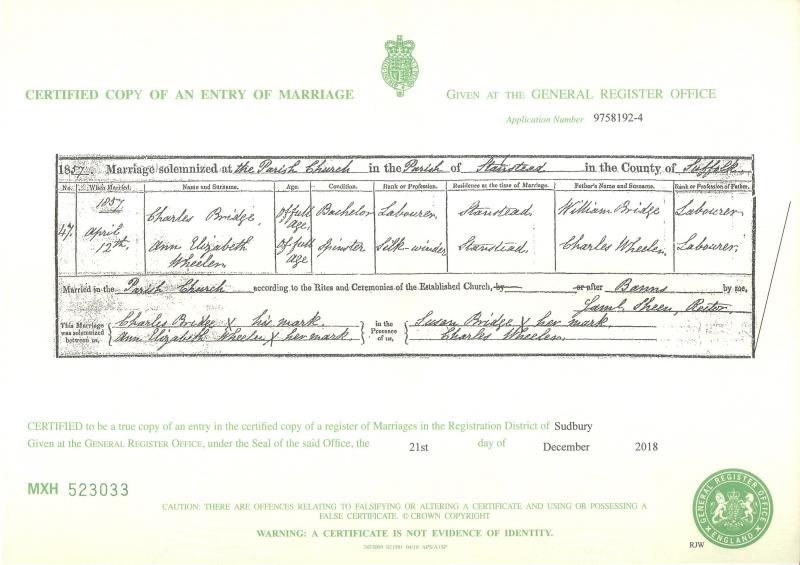 CERTIFIED COPY OF AN ENTRY OF MARRIAGE
GIVEN AT THE GENERAL REGISTER OFFICE
Application Number 9758192-4
1857. Marriage solemnized at the Parish Church in the Parish of Stanstead in the County of Suffolk
No. When Married. Name and Surname. Age. Condition. Rank or Profession. Residence at the time of Marriage. Father's Name and Surname. Rank or Profession of Father.
47. 1857 April 12th. Charles Bridge, of full age, Bachelor Labourer Stanstead. William Bridge Labourer
Ann Elizabeth Wheelen of full age Spinster Silk-winder Stanstead. Charles Wheelen, Labourer.
Married in the Parish Church according to the Rites and Ceremonies of the Established Church, by or after Banns by me,
Saml. Sheen, Rector
This Marriage was solemnized between us, Charles Bridge X his mark. in the Presence of us, Susan Bridge X her mark
Ann Elizabeth Wheelen X her mark. Charles Wheelen.
CERTIFIED to be a true copy of an entry in the certified copy of a register of Marriages in the Registration District of Sudbury
Given at the GENERAL REGISTER OFFICE, under the Seal of the said Office, the 21st day of December 2018
MXH 523033
CAUTION: THERE ARE OFFENCES RELATING TO FALSIFYING OR ALTERING A CERTIFICATE AND USING OR POSSESSING A
FALSE CERTIFICATE. © CROWN COPYRIGHT
WARNING: A CERTIFICATE IS NOT EVIDENCE OF IDENTITY.
GENERAL REGISTER OFFICE
ENGLAND
RJW